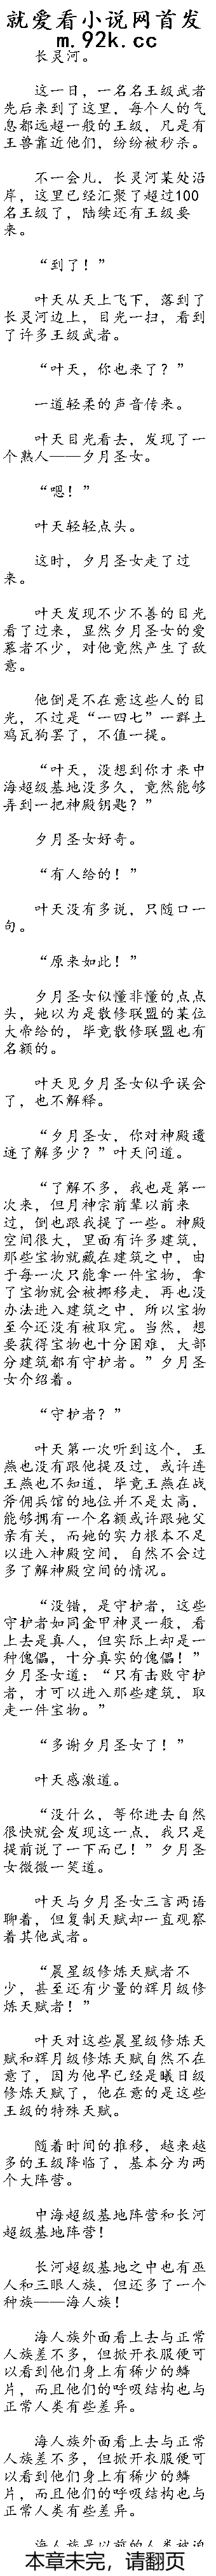 就爱看小说网首发
m.92k.cc
长灵河。
这一日，一名名王级武者
先后来到了这里，每个人的气
息都远超一般的王级，凡是有
王兽靠近他们，纷纷被秒杀。
不一会儿，长灵河某处沿
岸，这里已经汇聚了超过100
名王级了，陆续还有王级要
来。
“到了！”
叶天从天上飞下，落到了
长灵河边上，目光一扫，看到
了许多王级武者。
“叶天，你也来了？”
一道轻柔的声音传来。
叶天目光看去，发现了一
个熟人——夕月圣女。
“嗯！”
叶天轻轻点头。
这时，夕月圣女走了过
来。
叶天发现不少不善的目光
看了过来，显然夕月圣女的爱
慕者不少，对他竟然产生了敌
意。
他倒是不在意这些人的目
光，不过是“一四七”一群土
鸡瓦狗罢了，不值一提。
“叶天，没想到你才来中
海超级基地没多久，竟然能够
弄到一把神殿钥匙？”
夕月圣女好奇。
“有人给的！”
叶天没有多说，只随口一
句。
“原来如此！”
夕月圣女似懂非懂的点点
头，她以为是散修联盟的某位
大帝给的，毕竟散修联盟也有
名额的。
叶天见夕月圣女似乎误会
了，也不解释。
“夕月圣女，你对神殿遗
迹了解多少？”叶天问道。
“了解不多，我也是第一
次来，但月神宗前辈以前来
过，倒也跟我提了一些。神殿
空间很大，里面有许多建筑，
那些宝物就藏在建筑之中，由
于每一次只能拿一件宝物，拿
了宝物就会被挪移走，再也没
办法进入建筑之中，所以宝物
至今还没有被取完。当然，想
要获得宝物也十分困难，大部
分建筑都有守护者。”夕月圣
女介绍着。
“守护者？”
叶天第一次听到这个，王
燕也没有跟他提及过，或许连
王燕也不知道，毕竟王燕在战
斧佣兵馆的地位并不是太高，
能够拥有一个名额或许跟她父
亲有关，而她的实力根本不足
以进入神殿空间，自然不会过
多了解神殿空间的情况。
“没错，是守护者，这些
守护者如同金甲神灵一般，看
上去是真人，但实际上却是一
种傀儡，十分真实的傀儡！”
夕月圣女道：“只有击败守护
者，才可以进入那些建筑，取
走一件宝物。”
“多谢夕月圣女了！”
叶天感激道。
“没什么，等你进去自然
很快就会发现这一点，我只是
提前说了一下而已！”夕月圣
女微微一笑道。
叶天与夕月圣女三言两语
聊着，但复制天赋却一直观察
着其他武者。
“晨星级修炼天赋者不
少，甚至还有少量的辉月级修
炼天赋者！”
叶天对这些晨星级修炼天
赋和辉月级修炼天赋自然不在
意了，因为他早已经是曦日级
修炼天赋了，他在意的是这些
王级的特殊天赋。
随着时间的推移，越来越
多的王级降临了，基本分为两
个大阵营。
中海超级基地阵营和长河
超级基地阵营！
长河超级基地之中也有巫
人和三眼人族，但还多了一个
种族——海人族！
海人族外面看上去与正常
人族差不多，但掀开衣服便可
以看到他们身上有稀少的鳞
片，而且他们的呼吸结构也与
正常人类有些差异。
海人族外面看上去与正常
人族差不多，但掀开衣服便可
以看到他们身上有稀少的鳞
片，而且他们的呼吸结构也与
正常人类有些差异。
海人族是以前的人类被迫
本章未完，请翻页